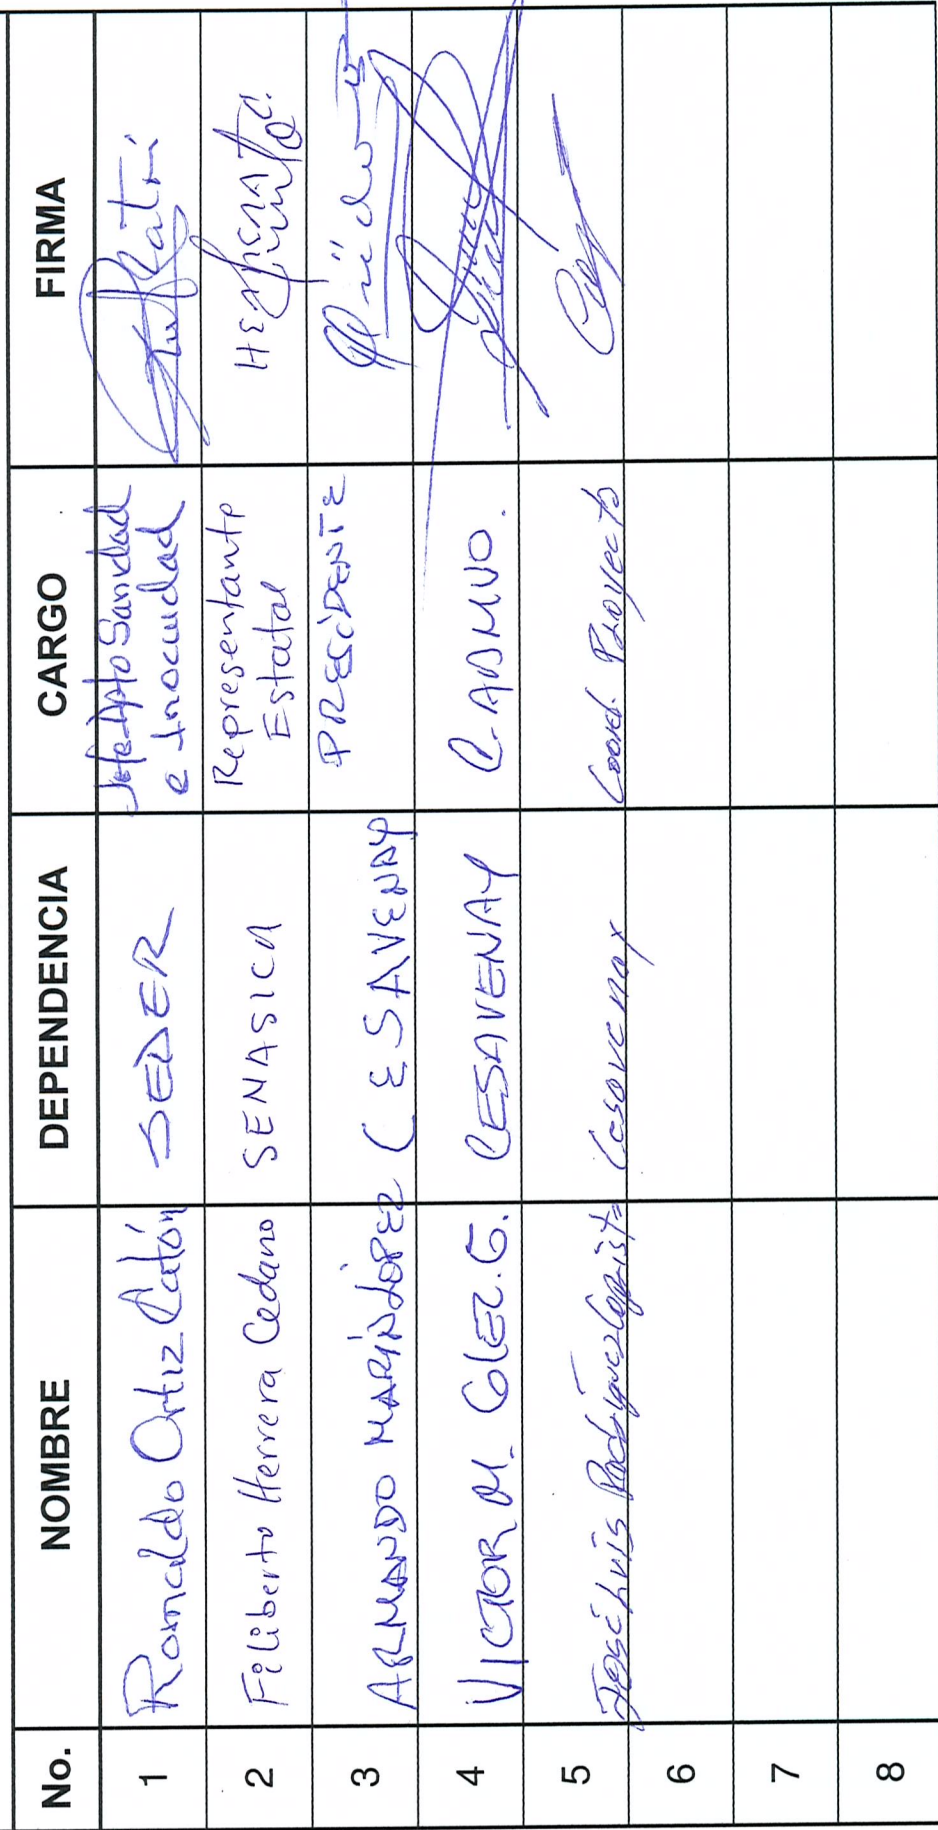 No. NOMBRE DEPENDENCIA CARGO FIRMA
1 Romaldo Ortiz Catón SEDER Jefe Dpto Sanidad
e Inocuidad
2 Filiberto Herrera Cedano SENASICA Representante
Estatal
3 ARMANDO MARÍN LÓPEZ CESAVENAY PRESIDENTE
4 VICTOR M. GLEZ. G. CESAVENAY C. ADMVO.
5 José Luis Rodríguez Cesavenay Coord. Proyecto
6
7
8